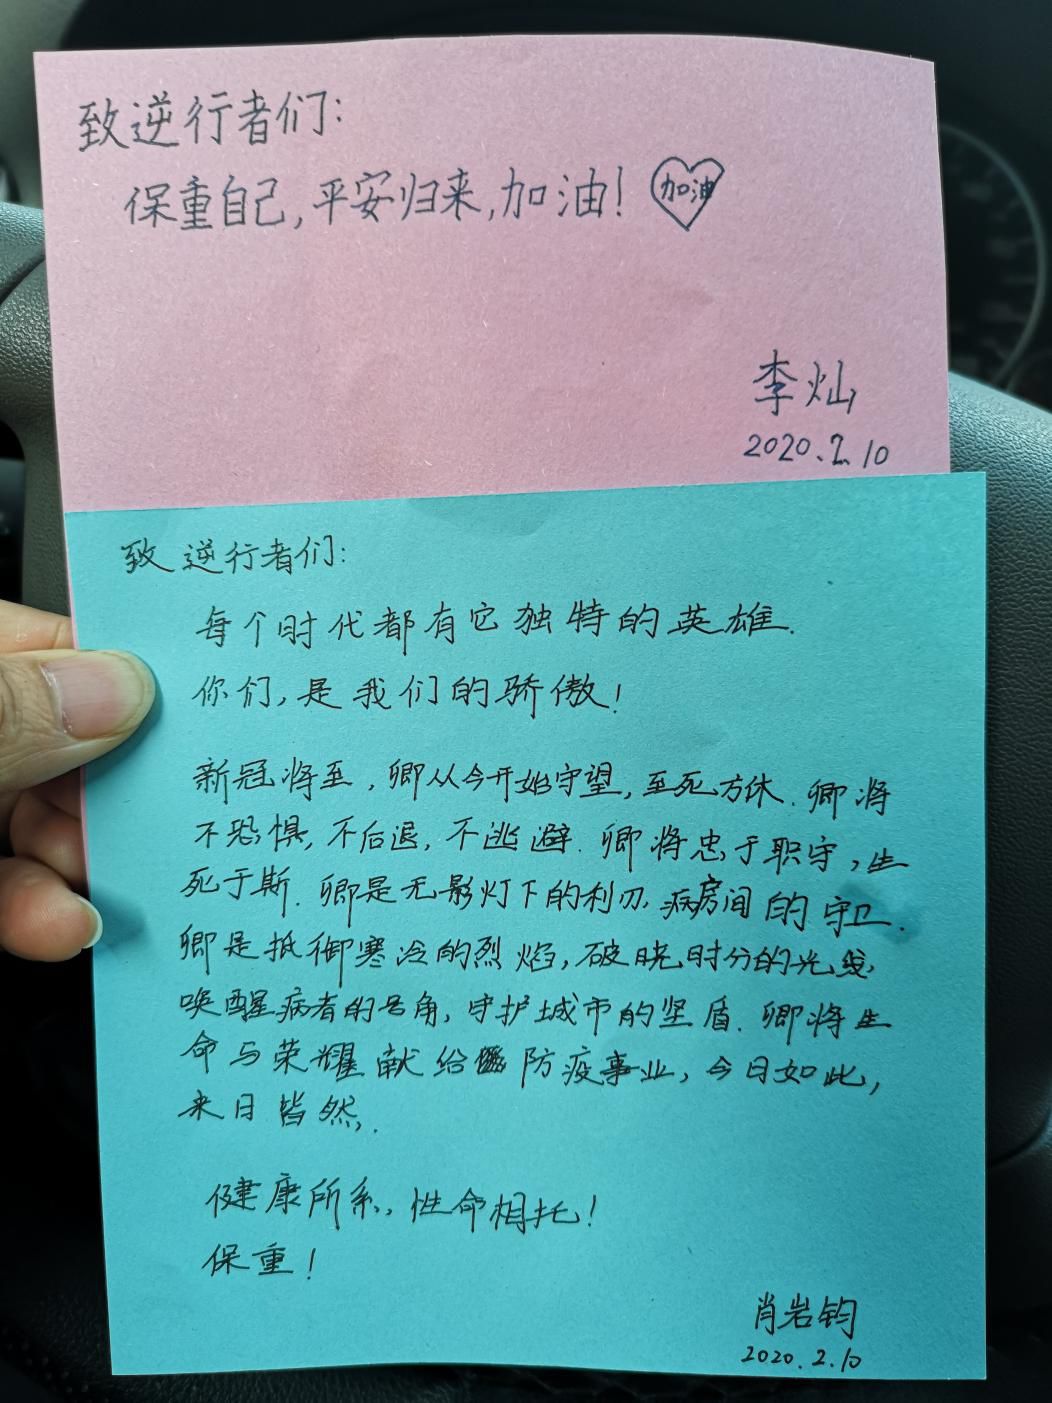 致逆行者们:
保重自己,平安归来,加油! 加油
李灿
2020.2.10
致逆行者们:
每个时代都有它独特的英雄.
你们,是我们的骄傲!
新冠将至,卿从今开始守望,至死方休.卿将
不恐惧,不后退,不逃避.卿将忠于职守,生
死于斯.卿是无影灯下的利刃,病房间的守卫.
卿是抵御寒冷的烈焰,破晓时分的光线,
唤醒病者的号角,守护城市的坚盾.卿将生
命与荣耀献给防疫事业,今日如此,
来日皆然.
健康所系,性命相托!
保重!
肖岩钧
2020.2.10